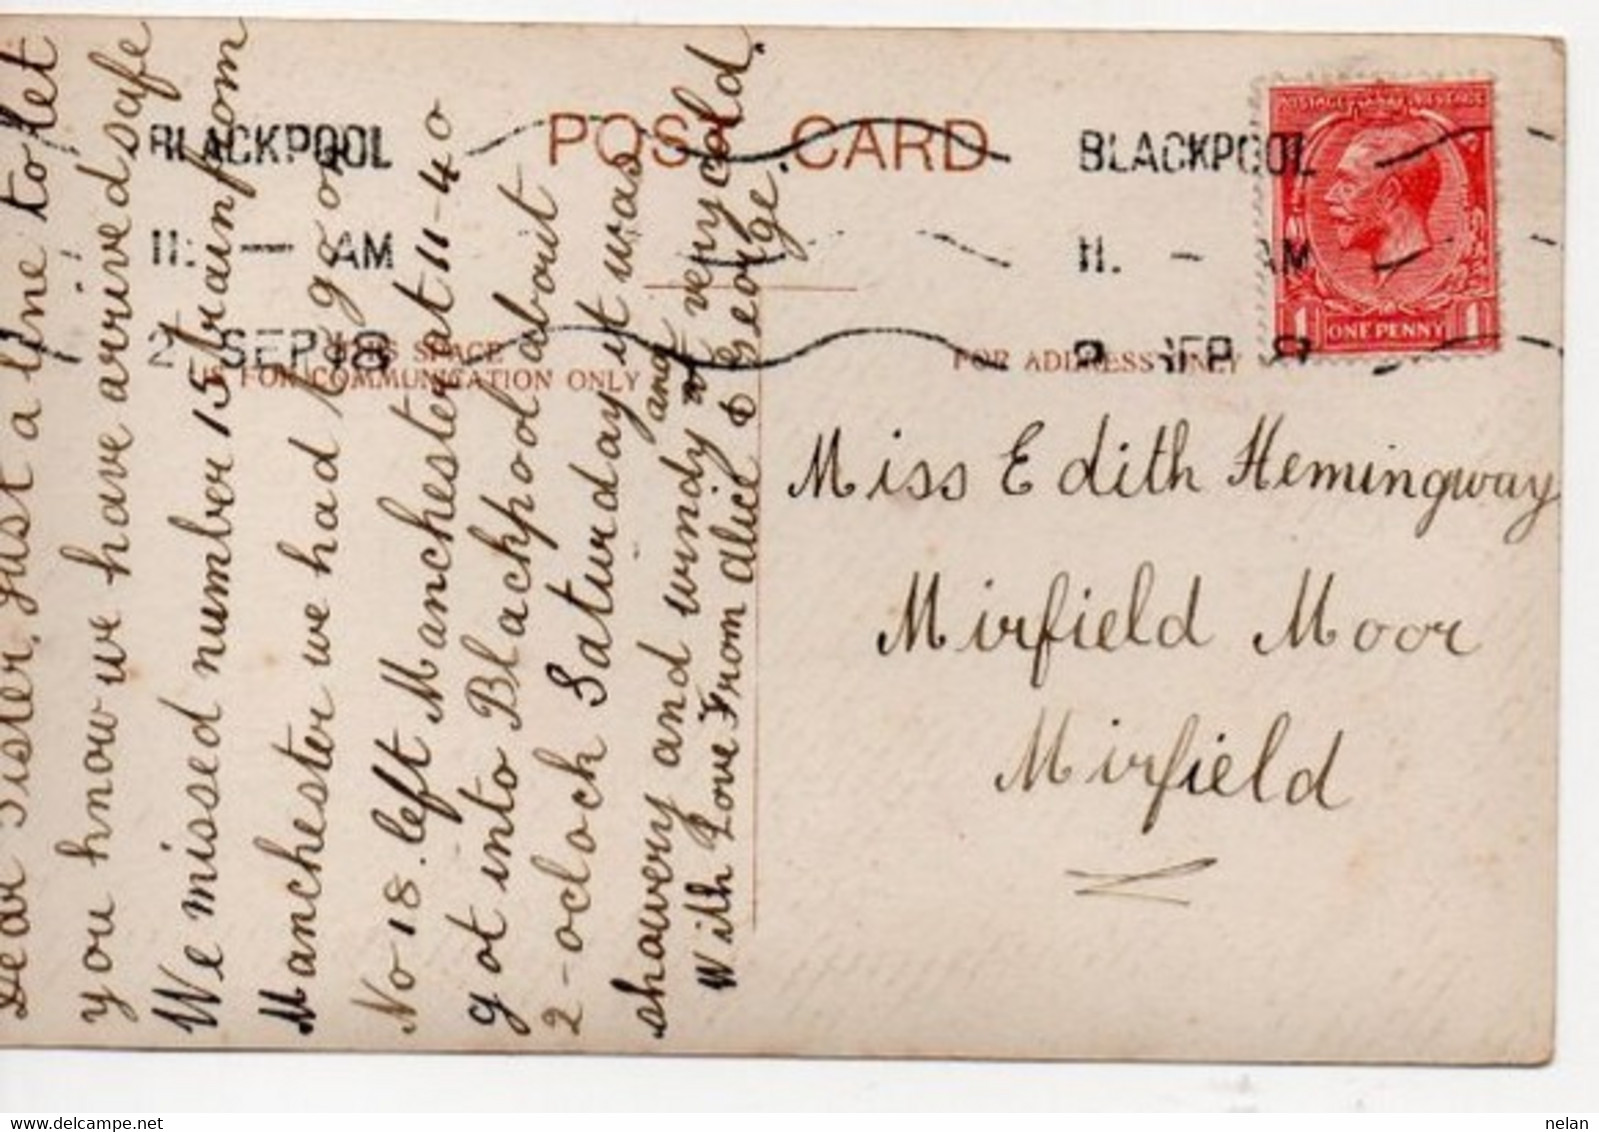 Dear Sister, Just a line to let
you know we have arrived safe
We missed number 15 train from
Manchester we had to go on
No 18. left Manchester at 11-40
got into Blackpool about
2-oclock Saturday it was
showery and windy and very cold.
With Love From Alice & George
POST CARD
BLACKPOOL
11. - AM
2 SEP 18
THIS SPACE
IS FOR COMMUNICATION ONLY
BLACKPOOL
11. - AM
FOR ADDRESS ONLY
POSTAGE REVENUE
1 ONE PENNY 1
Miss Edith Hemingway
Mirfield Moor
Mirfield
nelan